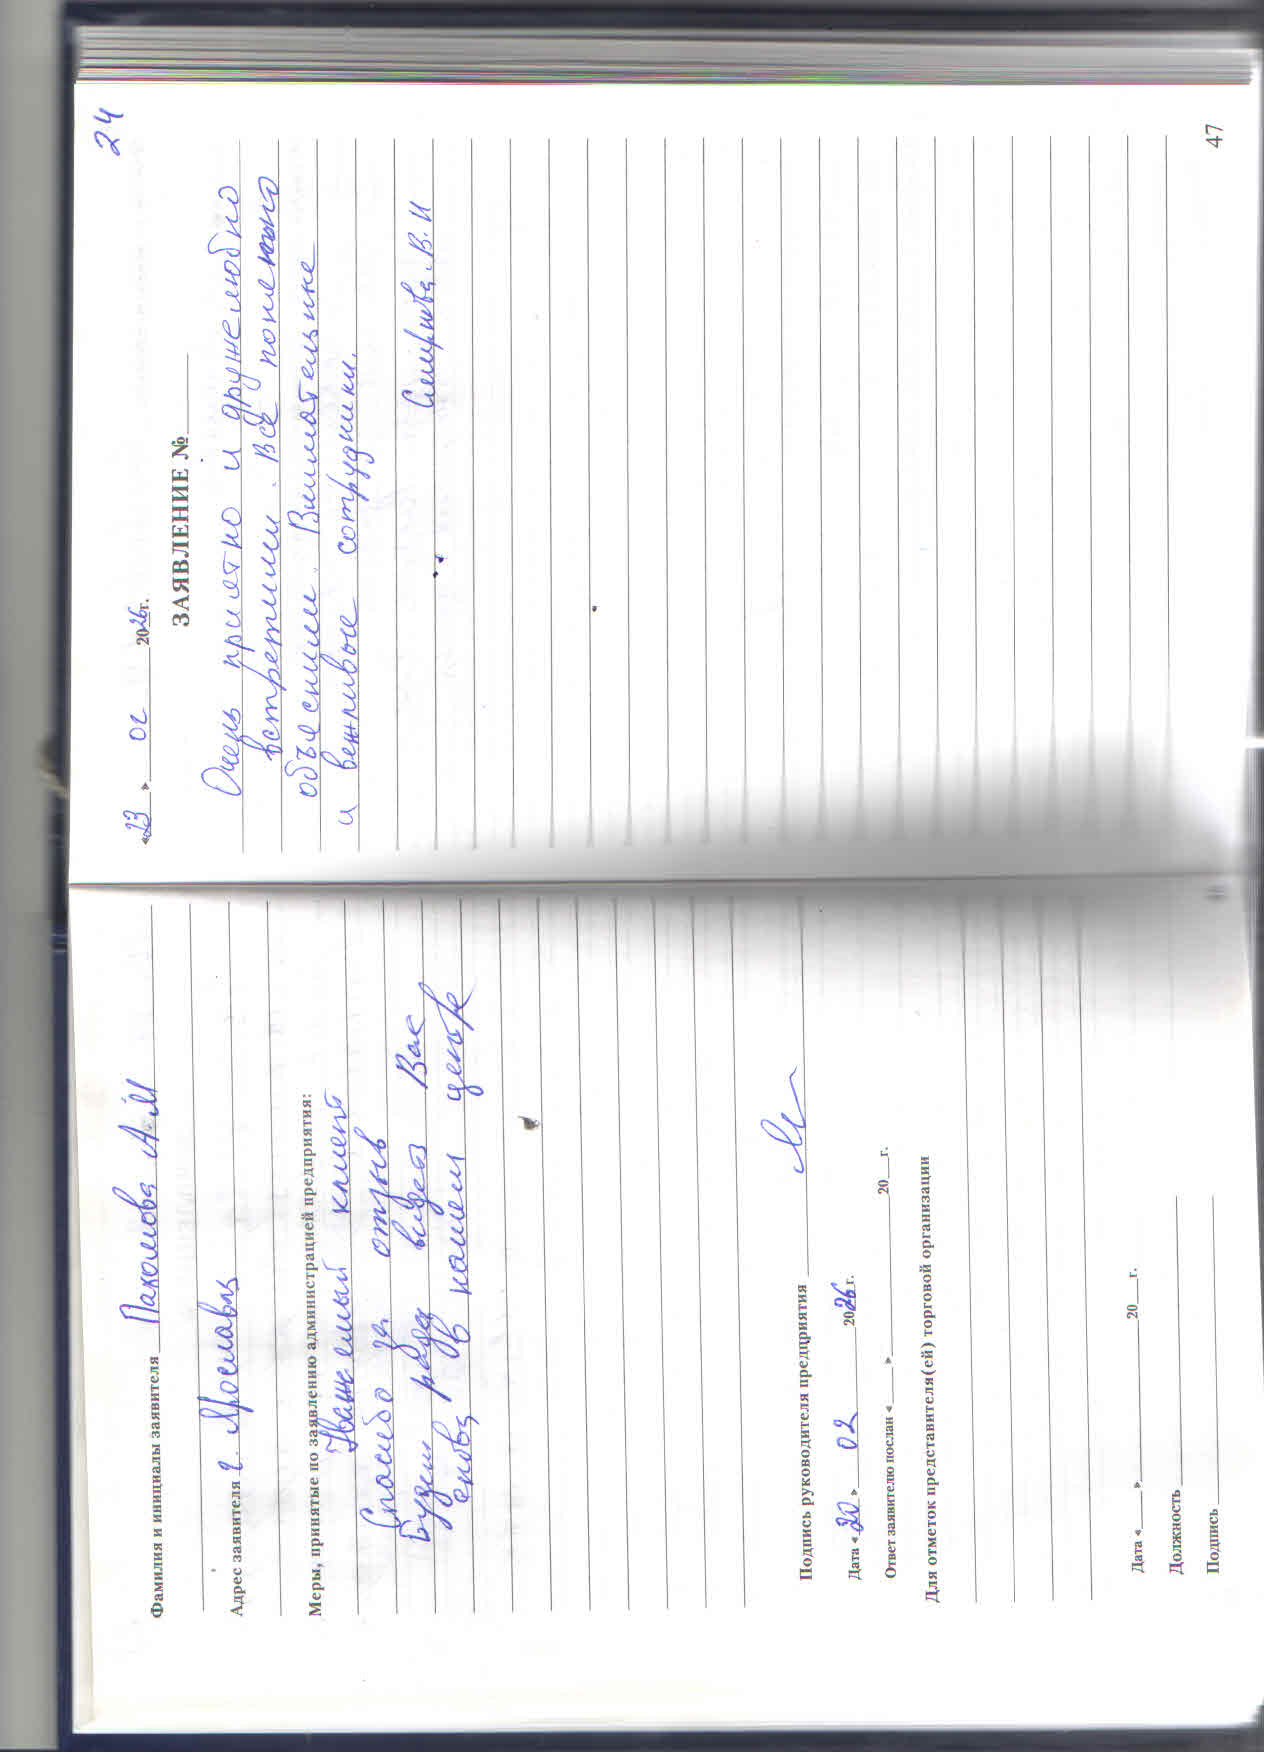 Фамилия и инициалы заявителя Пахомова А.М
Адрес заявителя г. Ярославль
Меры, принятые по заявлению администрацией предприятия:
Уважаемый клиент
Спасибо за отзыв
Будем рады видеть Вас
снова в нашем центре
Подпись руководителя предприятия
Дата « 20 » 02 2026 г.
Ответ заявителю послан « » 20 г.
Для отметок представителя(ей) торговой организации
Дата « » 20 г.
Должность
Подпись
24
« 23 » 02 2026 г.
ЗАЯВЛЕНИЕ №
Очень приятно и дружелюбно
встретили. Всё
объяснили. Внимательные
и вежливые сотрудники.
Смирнова В.И
47